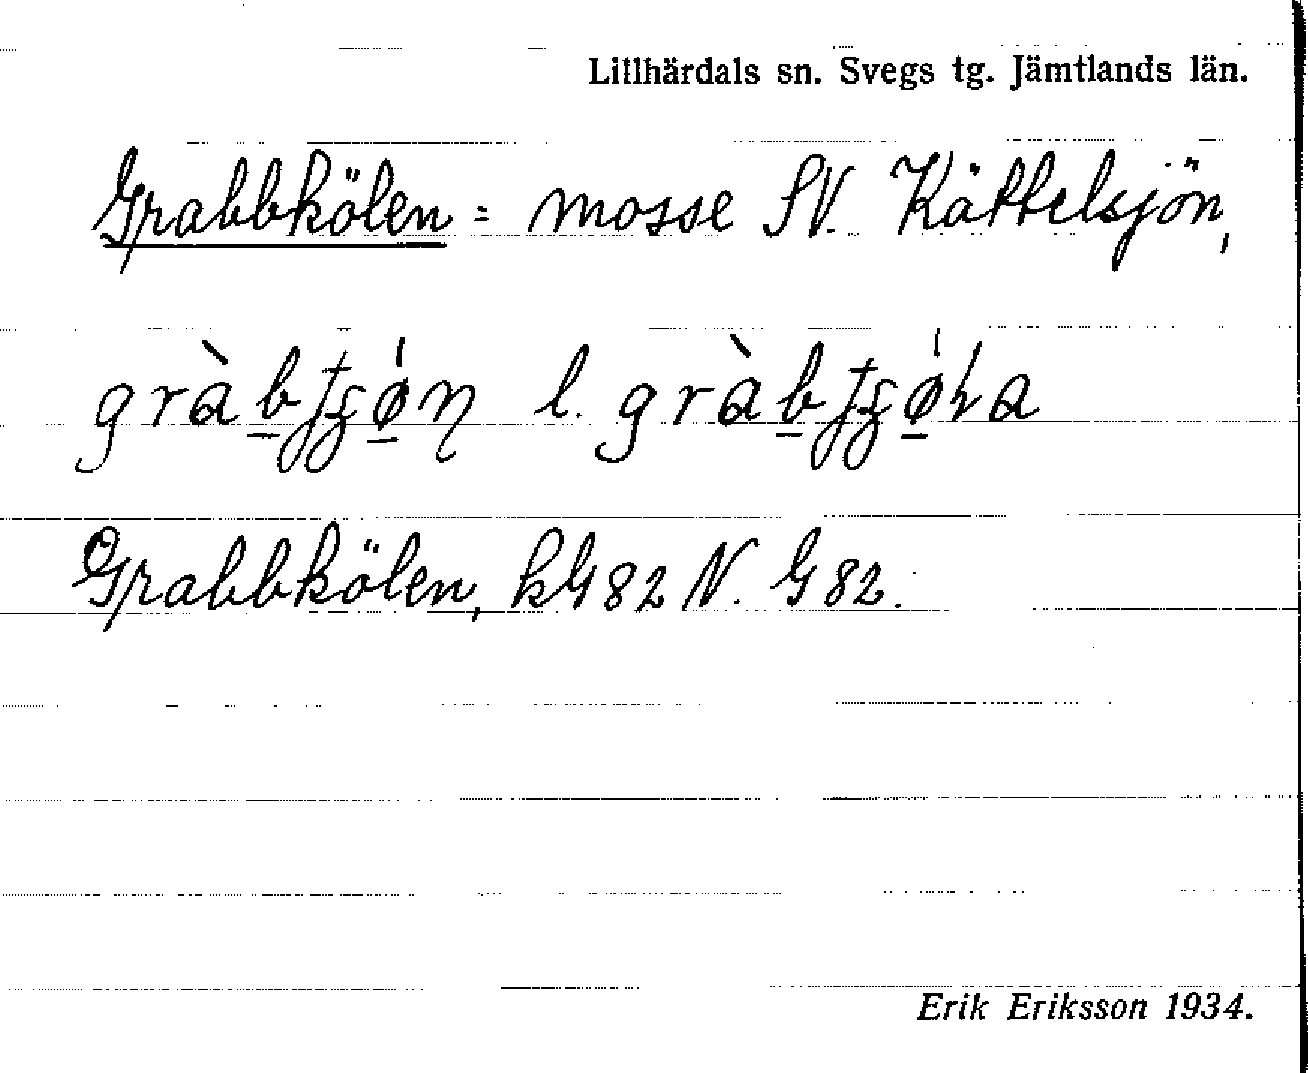 Lillhärdals sn. Svegs tg. Jämtlands län.
Grabbkölen = mosse SV. Kättelsjön,
l.
Grabbkölen, kG82 N. G82.
Erik Eriksson 1934.